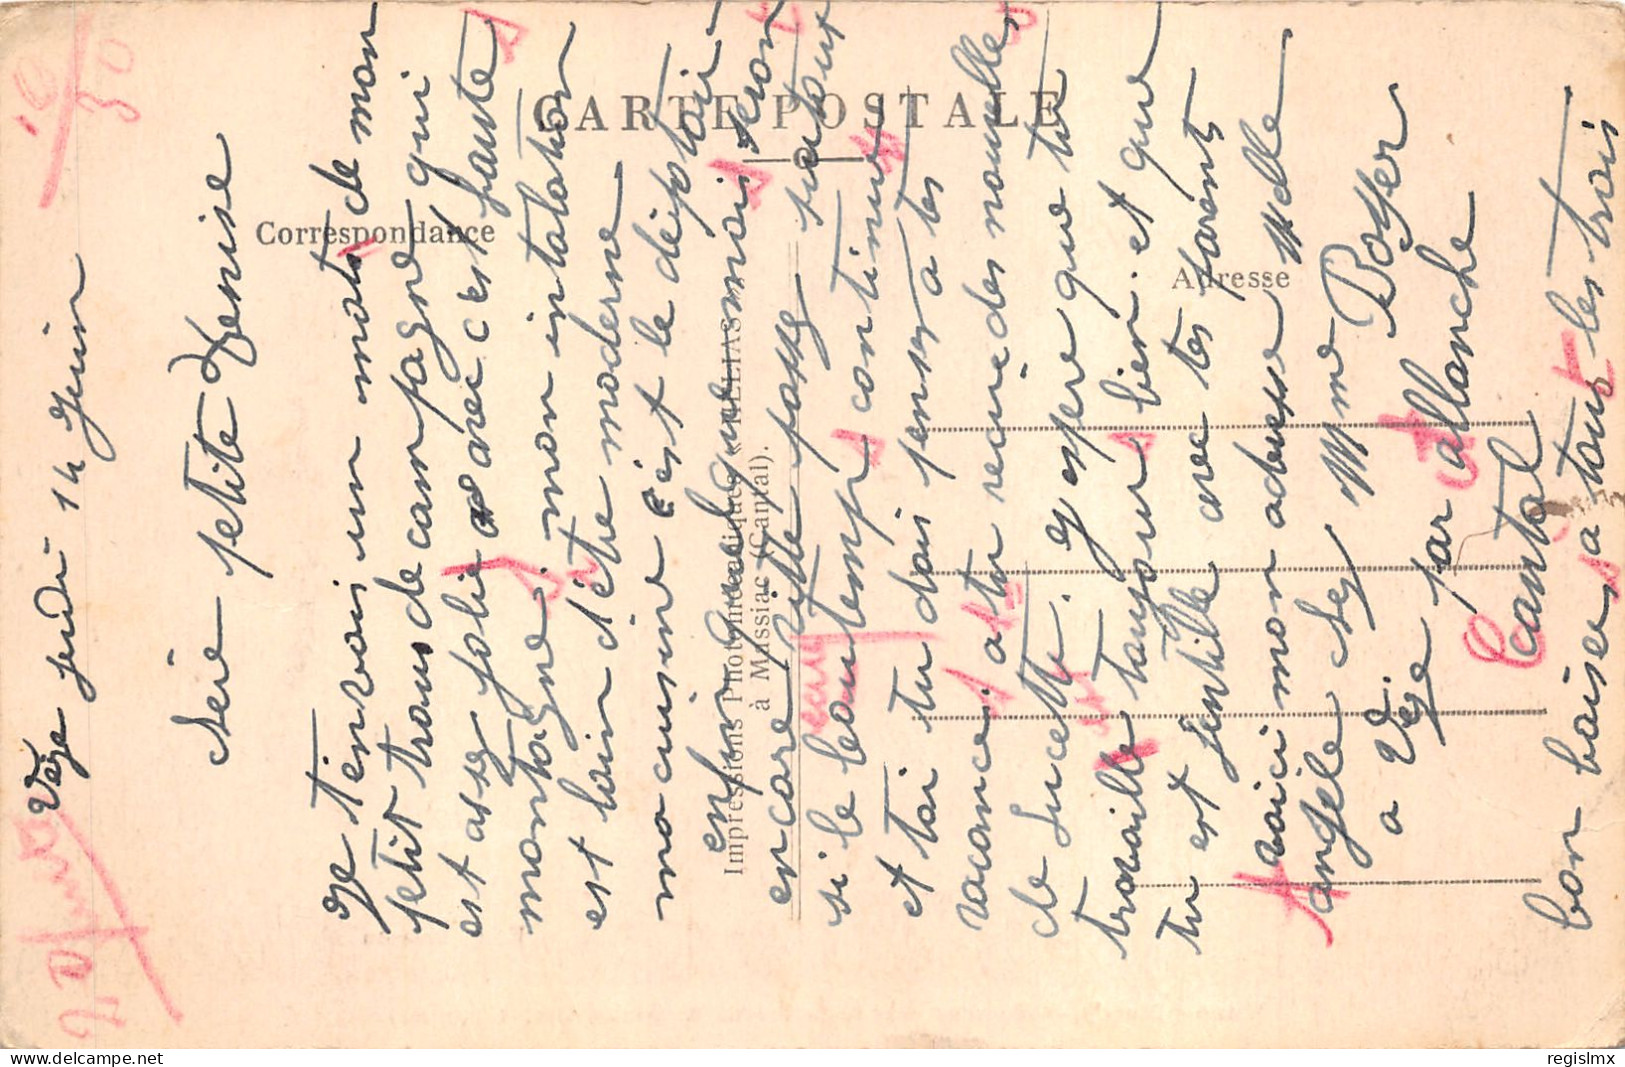 CARTE POSTALE
Correspondance
Adresse
Impressions Photoméc iques « ELLIAS
à Massiac (Cantal).
Vèze jeudi 14 Juin
chère petite Denise
Je t'envois un mots de mon
petit trous de campagne qui
est assez jolie avec c'est haute
montagne. mon intalation
est loin d'être moderne
ma cuisine c'est le dépotoir
enfin quelque mois seron
encore vitte passez surtout
si le beau temp continue
et toi tu dois penser a tes
vacance. a tu recue des nouvelles
de Sucette. J'espère que tu
travaille toujour bien. et que
tu est gentille avec tes parents
voici mon adresse Melle
angèle chez Mme Boyer
a Vèze par allanche
Cantal
bon baisers a tous les trois
10
30
S
S